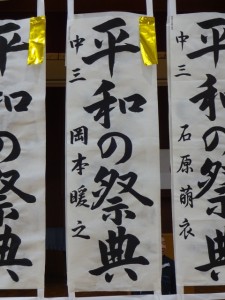 平和の祭典
中三 石原萌衣
平和の祭典
中三 岡本暖之
平和の祭典